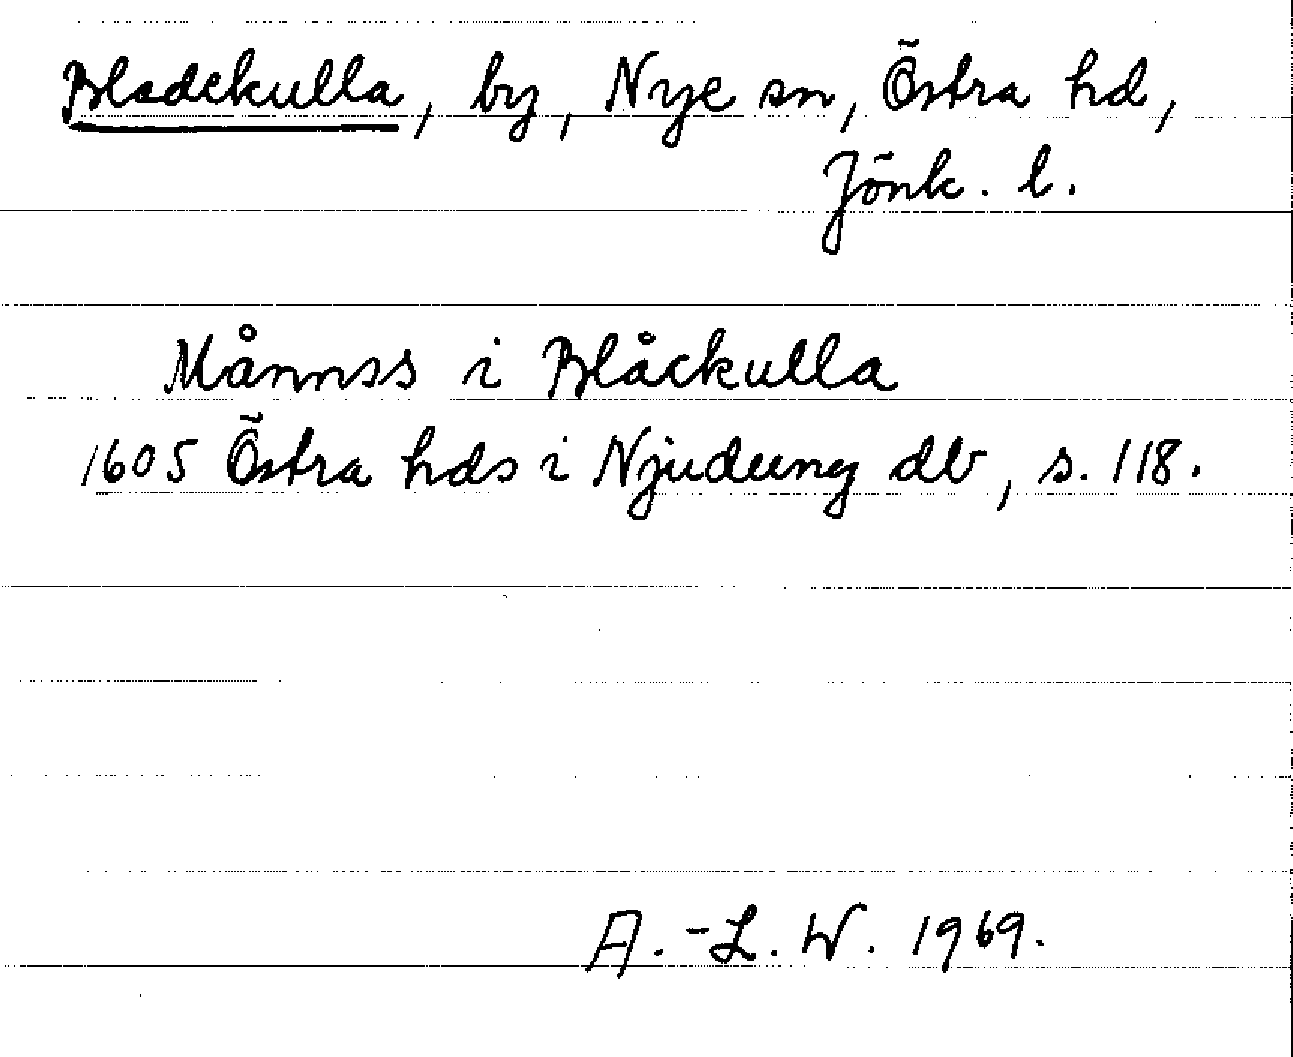 Bladekulla, by, Nye sn, Östra hd,
Jönk. l.
Månnss i Blåckulla
1605 Östra hds i Njudung db, s. 118.
A.-L. W. 1969.